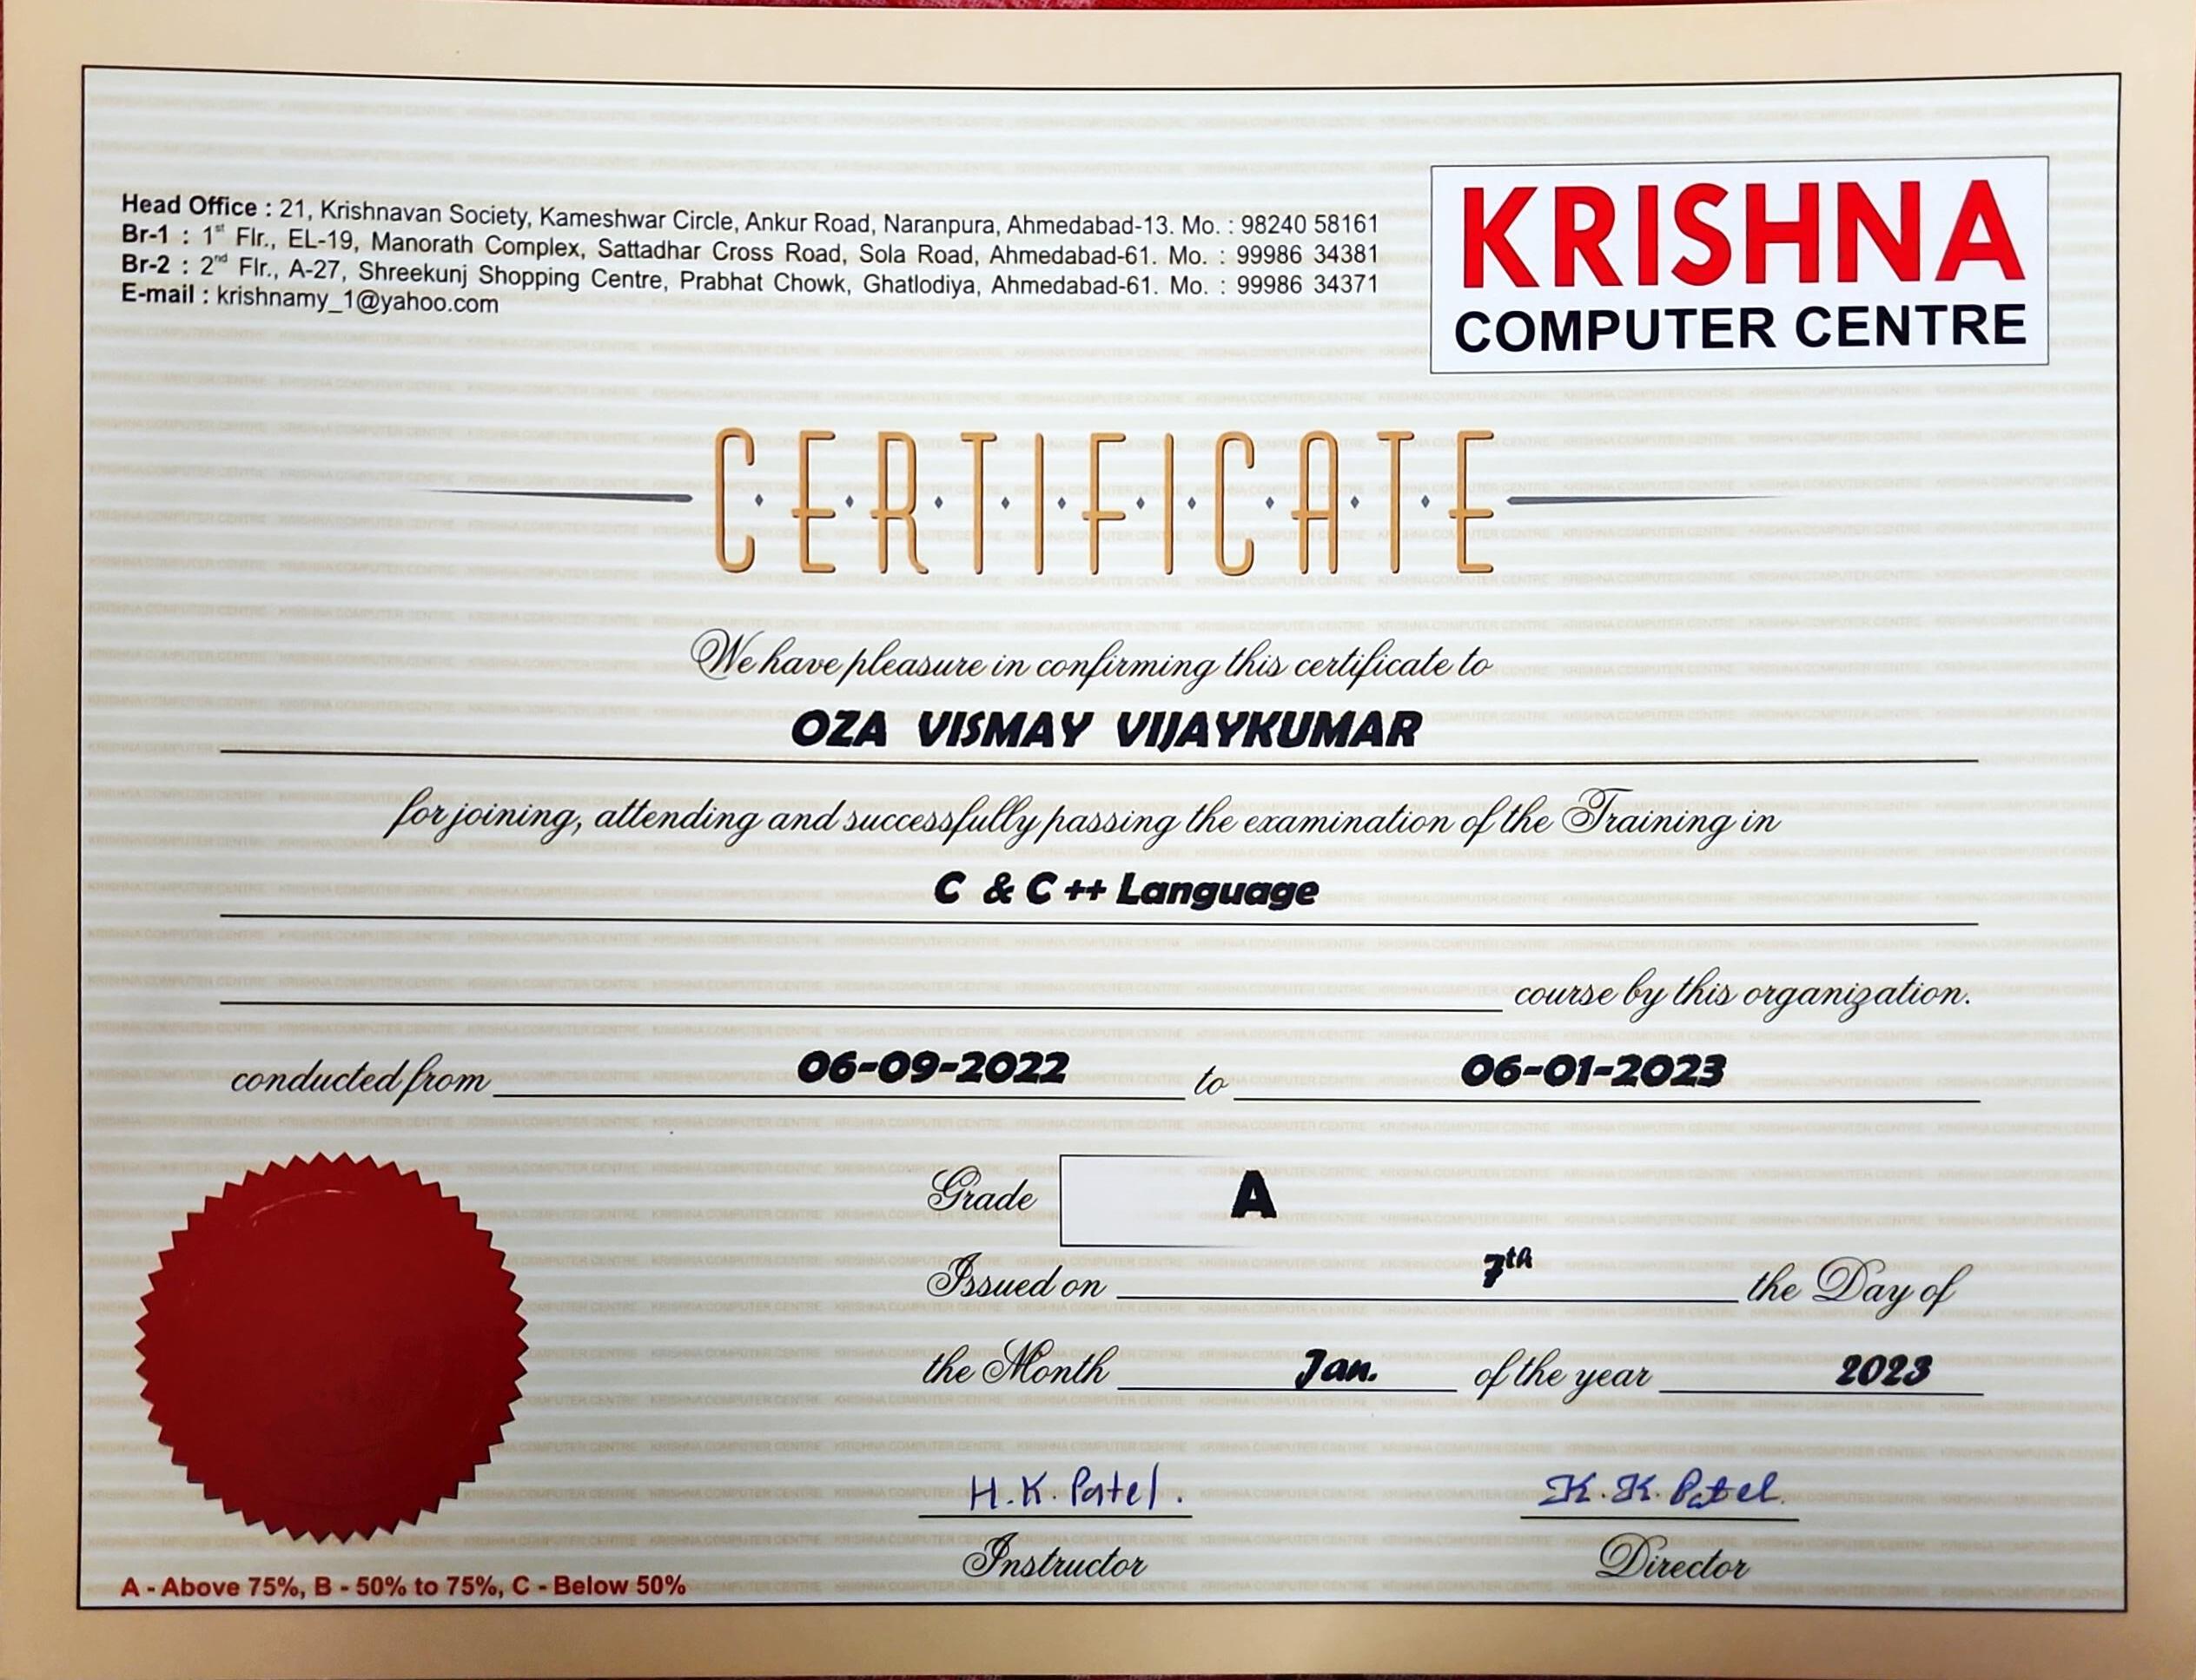 Head Office : 21, Krishnavan Society, Kameshwar Circle, Ankur Road, Naranpura, Ahmedabad-13. Mo. : 98240 58161
Br-1 : 1st Flr., EL-19, Manorath Complex, Sattadhar Cross Road, Sola Road, Ahmedabad-61. Mo. : 99986 34381
Br-2 : 2nd Flr., A-27, Shreekunj Shopping Centre, Prabhat Chowk, Ghatlodiya, Ahmedabad-61. Mo. : 99986 34371
E-mail : krishnamy_1@yahoo.com
KRISHNA
COMPUTER CENTRE
CERTIFICATE
We have pleasure in confirming this certificate to
OZA VISMAY VIJAYKUMAR
for joining, attending and successfully passing the examination of the Training in
C & C ++ Language
course by this organization.
conducted from 06-09-2022 to 06-01-2023
Grade A
Issued on 7th the Day of
the Month Jan. of the year 2023
H.K. Patel. K.K. Patel.
Instructor Director
A - Above 75%, B - 50% to 75%, C - Below 50%